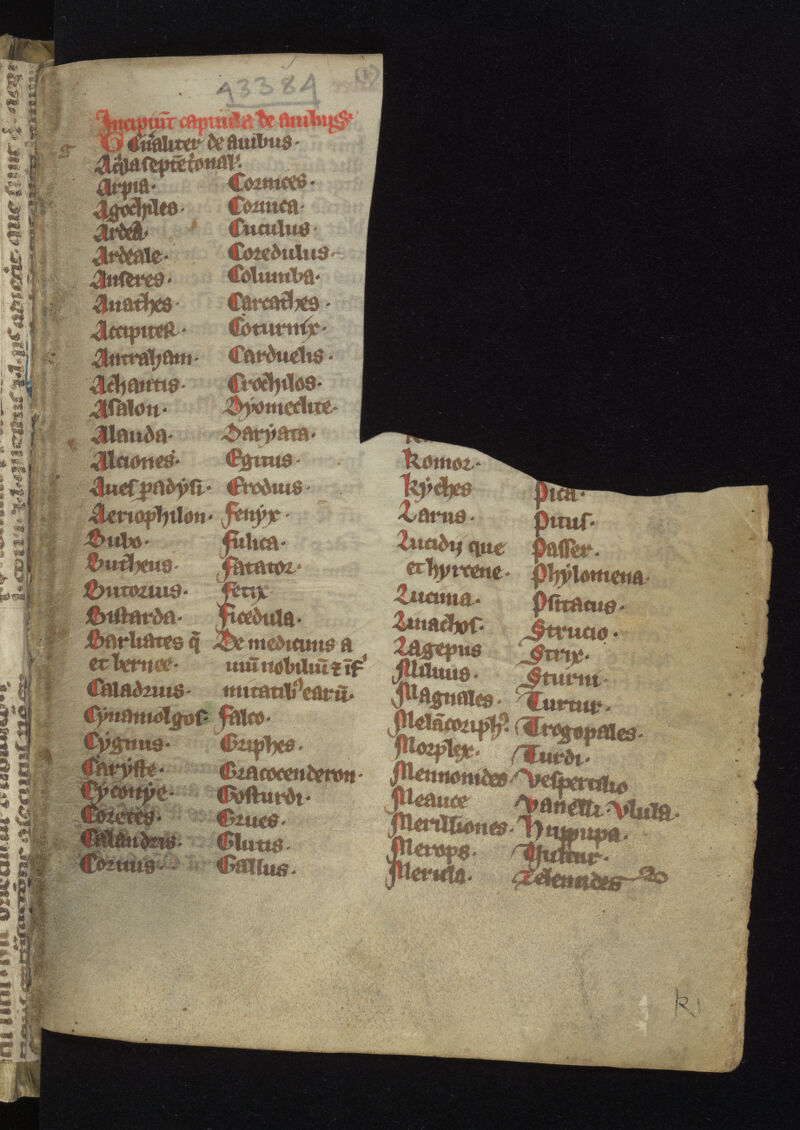 43384
Incipiu͞t capitula de auibus
Gen͛aliter de auibus.
Aq͛la septe͞t͛onal͛.
Arpia.
Agochiles.
Ardea.
Ardeale.
Anseres.
Anathes.
Accipiter.
Antraham.
Achantis.
Asalon.
Alauda.
Alciones.
Aues padysi.
Aeriophilon.
Bubo.
Butheus.
Butorius.
Bistarda.
Barliates q̄
et bernec.
Caladrius.
Cynamolgos.
Cygnus.
Caryste.
Cyconye.
Coretes.
Calandris.
Coruus.
Cornices.
Cornica.
Cuculus.
Coredulus.
Columba.
Carcathes.
Coturnix.
Carduelis.
Crochilos.
Dyomedite.
Daryata.
Egitus.
Erodius.
Fenyx.
Fulica.
Fatator.
Fetix.
Ficedula.
De medicinis a
uiu͞ nobiliu͞ ⁊ i͞f͛
mitatib͛ earu͞.
Falco.
Griphes.
Gracocenderon.
Gosturdi.
Grues.
Glutis.
Gallus.
Komor.
Kyches
Larus.
Lucidij que
et hyrcene.
Lucinia.
Linachos.
Lagepus
Miluus.
Magnales.
Mela͞coriph͛.
Morplex.
Mennonides
Meauce
Merilliones.
Merops.
Merula.
Pica.
Pitus.
Passer.
Phylomena.
Psitacus.
Strucio.
Strix.
Sturni.
Turtur.
Trogopales.
Turdi.
Vespertilio
Vanelli. Vlula.
Huppupa.
Vultur.
Zelentides